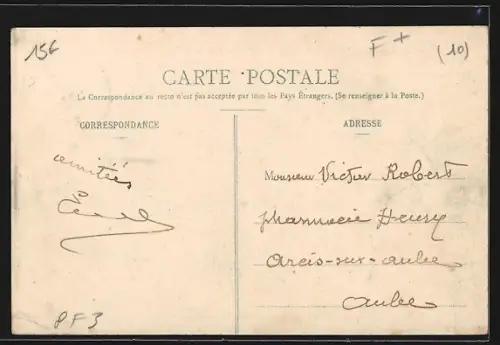 15€
F+
(10)
CARTE POSTALE
La Correspondance au recto n'est pas acceptée par tous les Pays Étrangers. (Se renseigner à la Poste.)
CORRESPONDANCE
amitiés
ADRESSE
Monsieur Victor Robert
pharmacie Henry
Arcis-sur-aube
aube
PF3